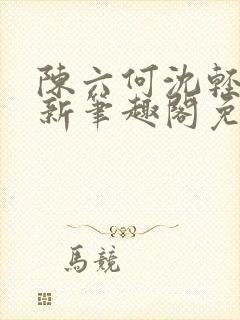 陳六何沈輕
新筆趣閣免
馬競